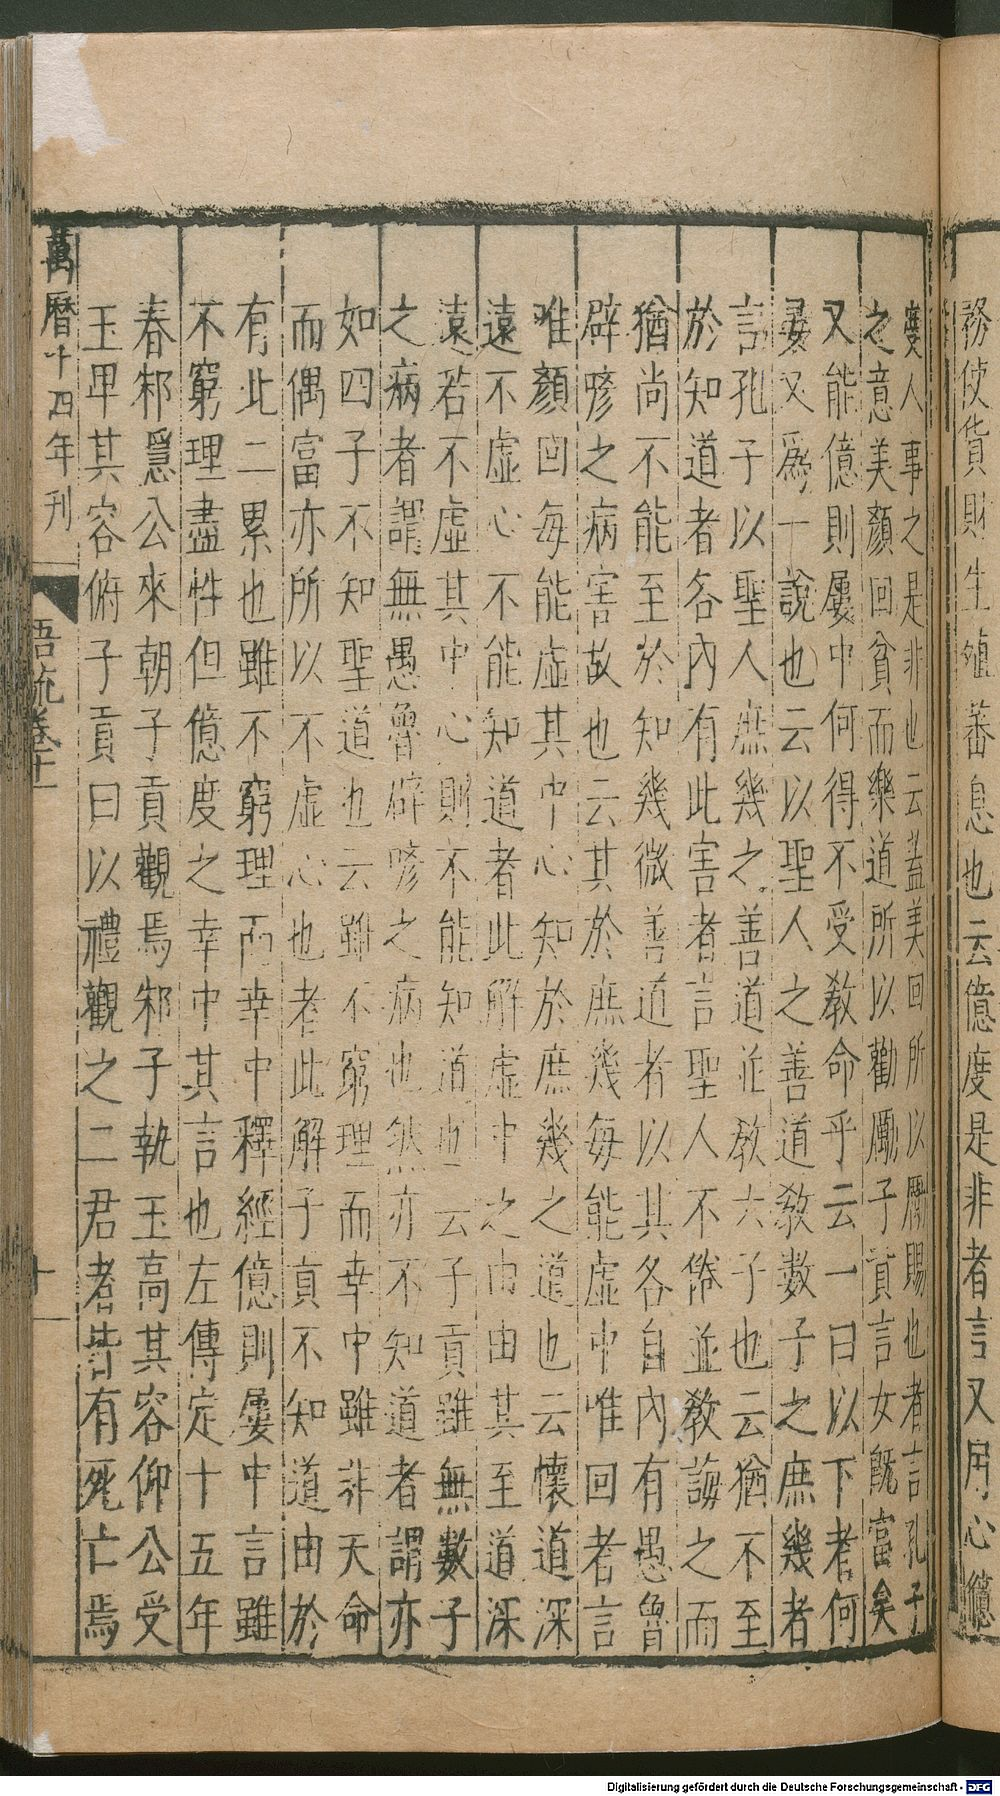 務使貨財生殖蕃息也云億度是非者言又用心億
度人事之是非也云蓋美回所以勵賜也者言孔子
之意美顏回貧而樂道所以勸勵子貢言女既富矣
又能億則屢中何得不受教命乎云一曰以下者何
晏又為一說也云以聖人之善道教數子之庶幾者
言孔子以聖人庶幾之善道並教六子也云猶不至
於知道者各內有此害者言聖人不倦並教誨之而
猶尚不能至於知幾微善道者以其各自內有愚魯
辟喭之病害故也云其於庶幾每能虛中唯回者言
唯顏回每能虛其中心知於庶幾之道也云懷道深
遠不虛心不能知道者此解虛中之由由其至道深
遠若不虛其中心則不能知道也云子貢雖無數子
之病者謂無愚魯辟喭之病也然亦不知道者謂亦
如四子不知聖道也云雖不窮理而幸中雖非天命
而偶富亦所以不虛心也者此解子貢不知道由於
有此二累也雖不窮理而幸中釋經億則屢中言雖
不窮理盡性但億度之幸中其言也左傳定十五年
春邾隱公來朝子貢觀焉邾子執玉高其容仰公受
玉卑其容俯子貢曰以禮觀之二君者皆有死亡焉
萬曆十四年刊
語疏卷十一
十
Digitalisierung gefördert durch die Deutsche Forschungsgemeinschaft - DFG